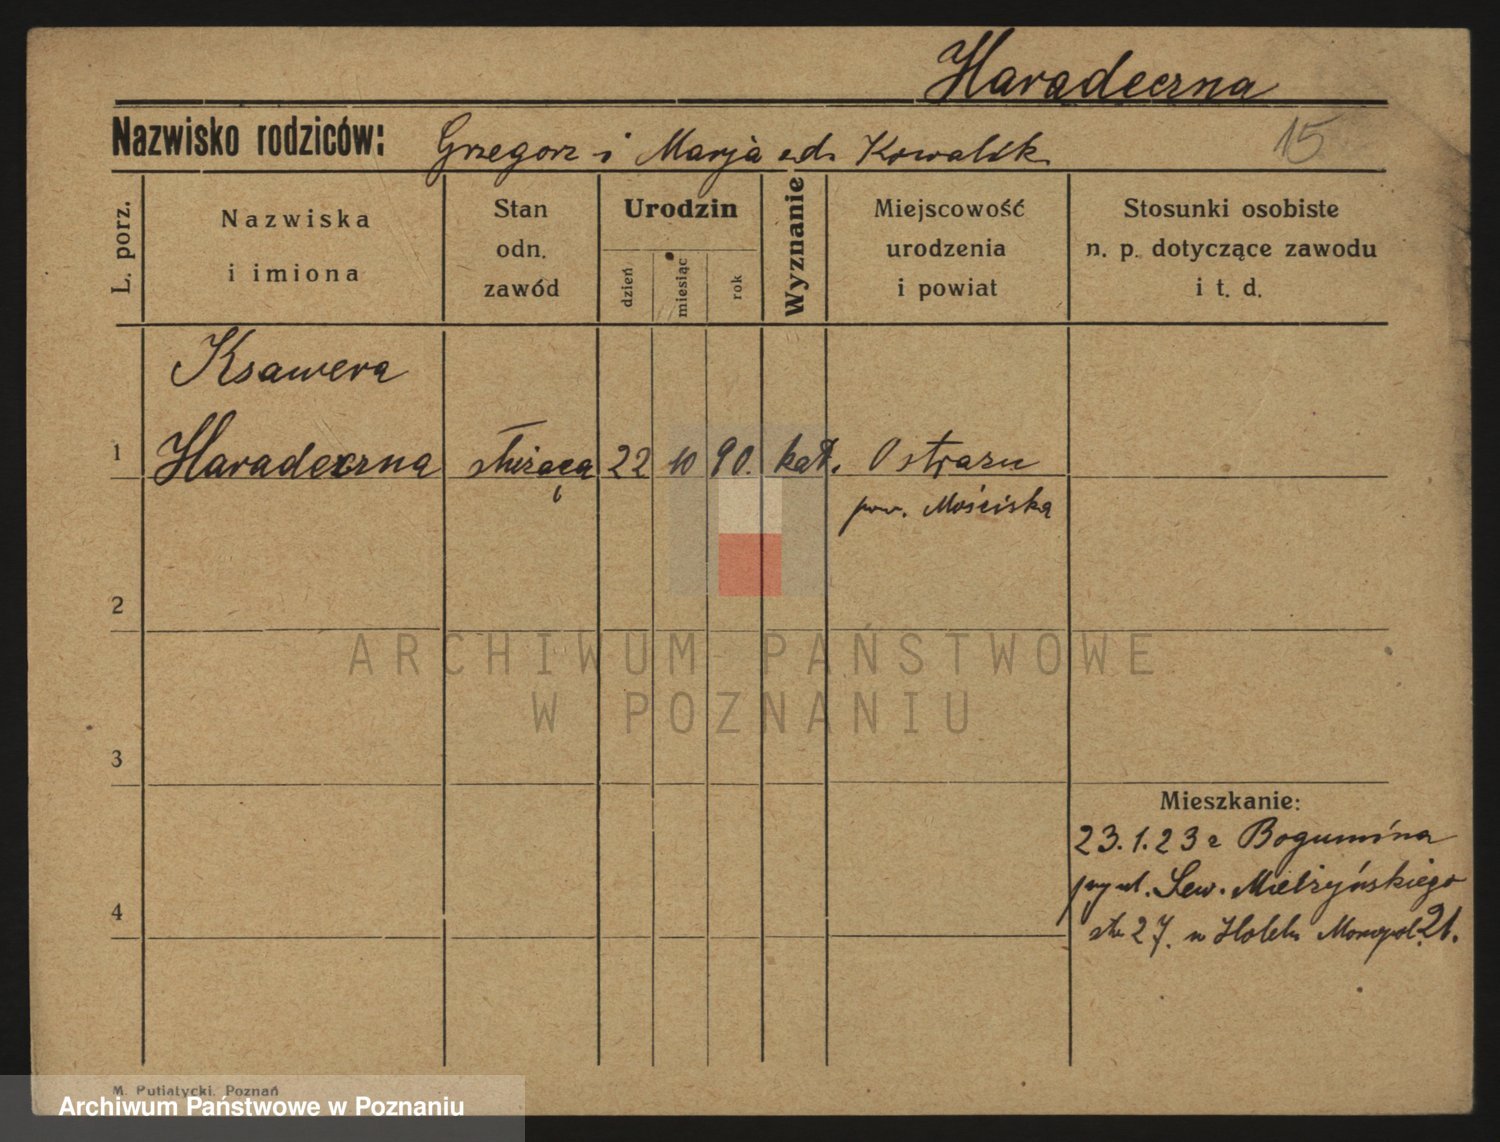 Haradeczna
Nazwisko rodziców: Grzegorz i Marja Kowalik
15
L. porz.
Nazwiska
i imiona
Stan
odn.
zawód
Urodzin
dzień
miesiąc
rok
Wyznanie
Miejscowość
urodzenia
i powiat
Stosunki osobiste
n. p. dotyczące zawodu
i t. d.
Ksawera
1 Haradeczna służąca 22 10 90. kat. Ostrazu
pow. Mościska
2
3
4
Mieszkanie:
23.1.23 z Bogumina
przy ul. Sew. Mielżyńskiego
27. w Hotelu Monopol. 21.
ARCHIWUM PAŃSTWOWE
W POZNANIU
M. Putiatycki, Poznań
Archiwum Państwowe w Poznaniu